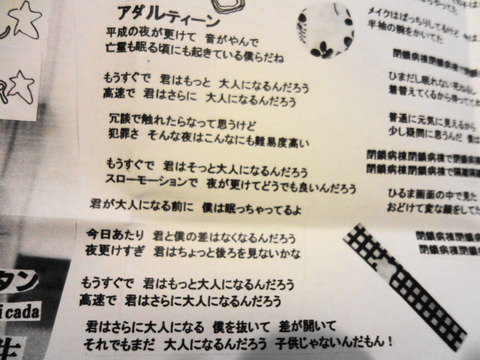 アダルティーン
平成の夜が更けて 音がやんで
亡霊も眠る頃にも起きている僕らだね
もうすぐで 君はもっと 大人になるんだろう
高速で 君はさらに 大人になるんだろう
冗談で触れたらなって思うけど
犯罪さ そんな夜はこんなにも難易度高い
もうすぐで 君はそっと 大人になるんだろう
スローモーションで 夜が更けてどうでも良いんだろう
君が大人になる前に 僕は眠っちゃってるよ
今日あたり 君と僕の差はなくなるんだろう
夜更けすぎ 君はちょっと後ろを見ないかな
もうすぐで 君はもっと大人になるんだろう
高速で 君はさらに大人になるんだろう
君はさらに大人になる 僕を抜いて 差が開いて
それでもまだ 大人になるんだろう 子供じゃないんだもん！
メイクはばっちりしてるけど
半袖の腕をかいてた
閉鎖病棟閉鎖病棟
ひまだし眠れない死ねない
着替えてくるから待ってて
普通に元気に見えるから
少し疑問に思うんだ
閉鎖病棟閉鎖病棟で閉鎖病
閉鎖病棟閉鎖病棟で隔離
ひるま画面の中で見た
おどけて変な顔をして
閉鎖病棟閉鎖病棟
閉鎖病棟閉鎖病棟
タン
icada